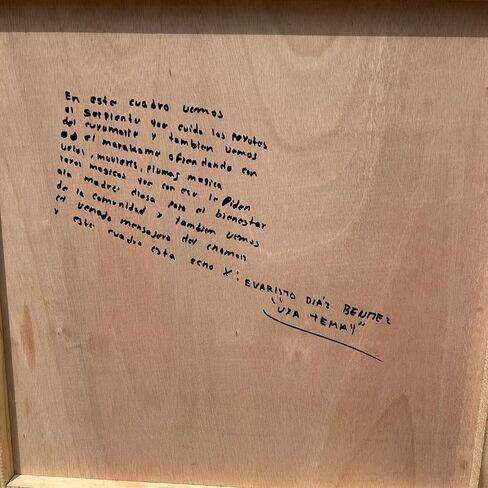 En este cuadro vemos
el serpiente que cuida los peyotes
del curumaire y tambien vemos
el marakame ofrendando con
velas, muvieris, plumas magica
magicos que con eso le Piden
ala madre diosa para el bienestar
de la comunidad y tambien vemos
el venado mensajero del chaman
y este cuadro esta echo X: EVARISTO DIAS BENITES
"UXA TEMAY"